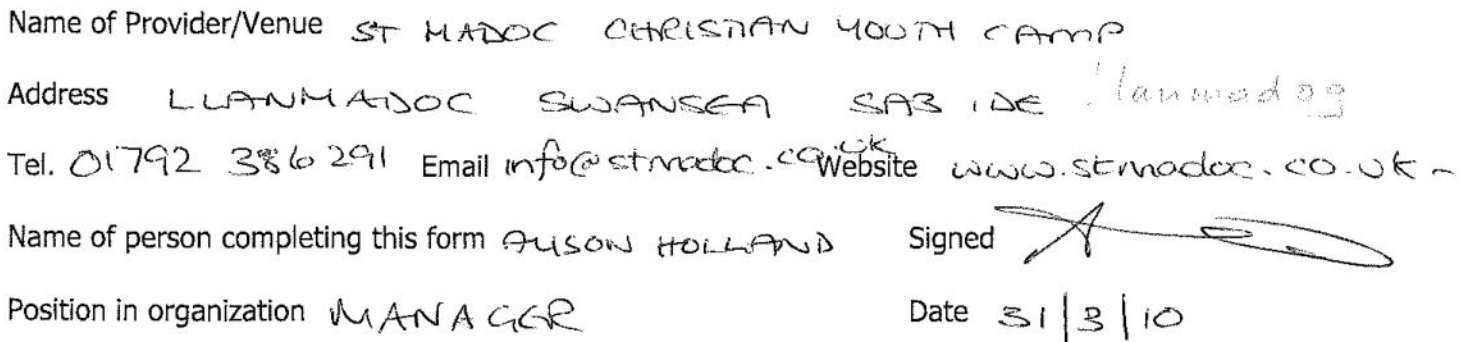 Name of Provider/Venue ST MADOC CHRISTIAN YOUTH CAMP
Address LLANMADOC SWANSEA SA3 1DE llanmadog
Tel. 01792 386291 Email info@stmadoc.co.uk Website www.stmadoc.co.uk
Name of person completing this form ALISON HOLLAND Signed
Position in organization MANAGER Date 31/3/10